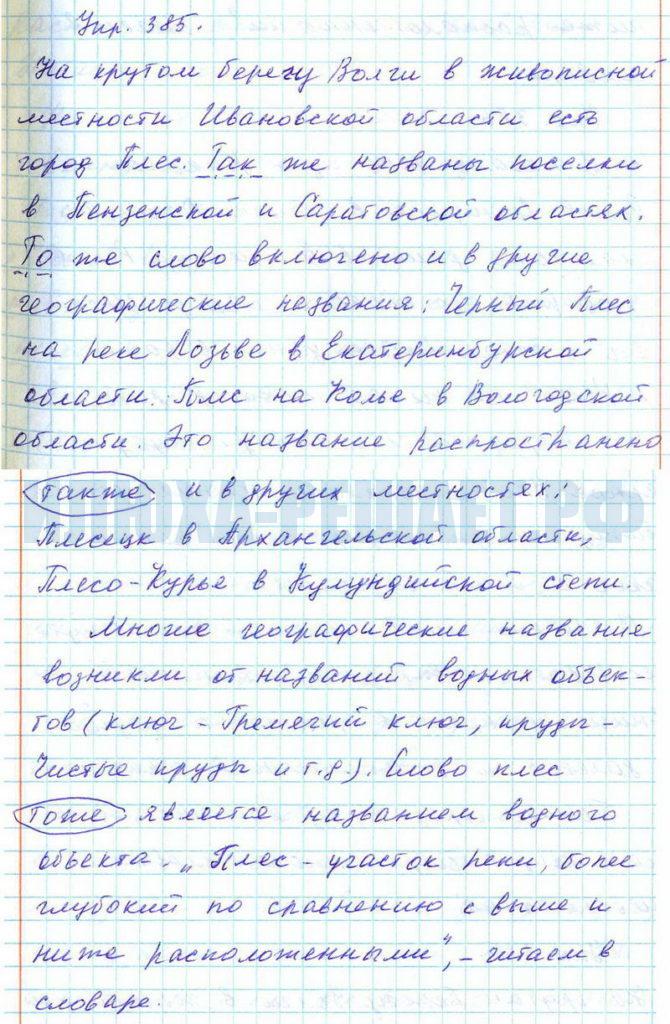 Упр. 385.
На крутом берегу Волги в живописной
местности Ивановской области есть
город Плес. Так же названы поселки
в Пензенской и Саратовской областях.
То же слово включено и в другие
географические названия: Черный Плес
на реке Лозьве в Екатеринбурской
области. Плес на Колье в Вологодской
области. Это название распространено
также и в других местностях:
Плесецк в Архангельской области,
Плесо-Курье в Кулундийской степи.
Многие географические названия
возникли от названий водных объек-
тов (ключ - Гремячий ключ, пруды -
Чистые пруды и т.д.). Слово плес
тоже является названием водного
объекта. „Плес - участок реки, более
глубокий по сравнению с выше и
ниже расположенными", - читаем в
словаре.